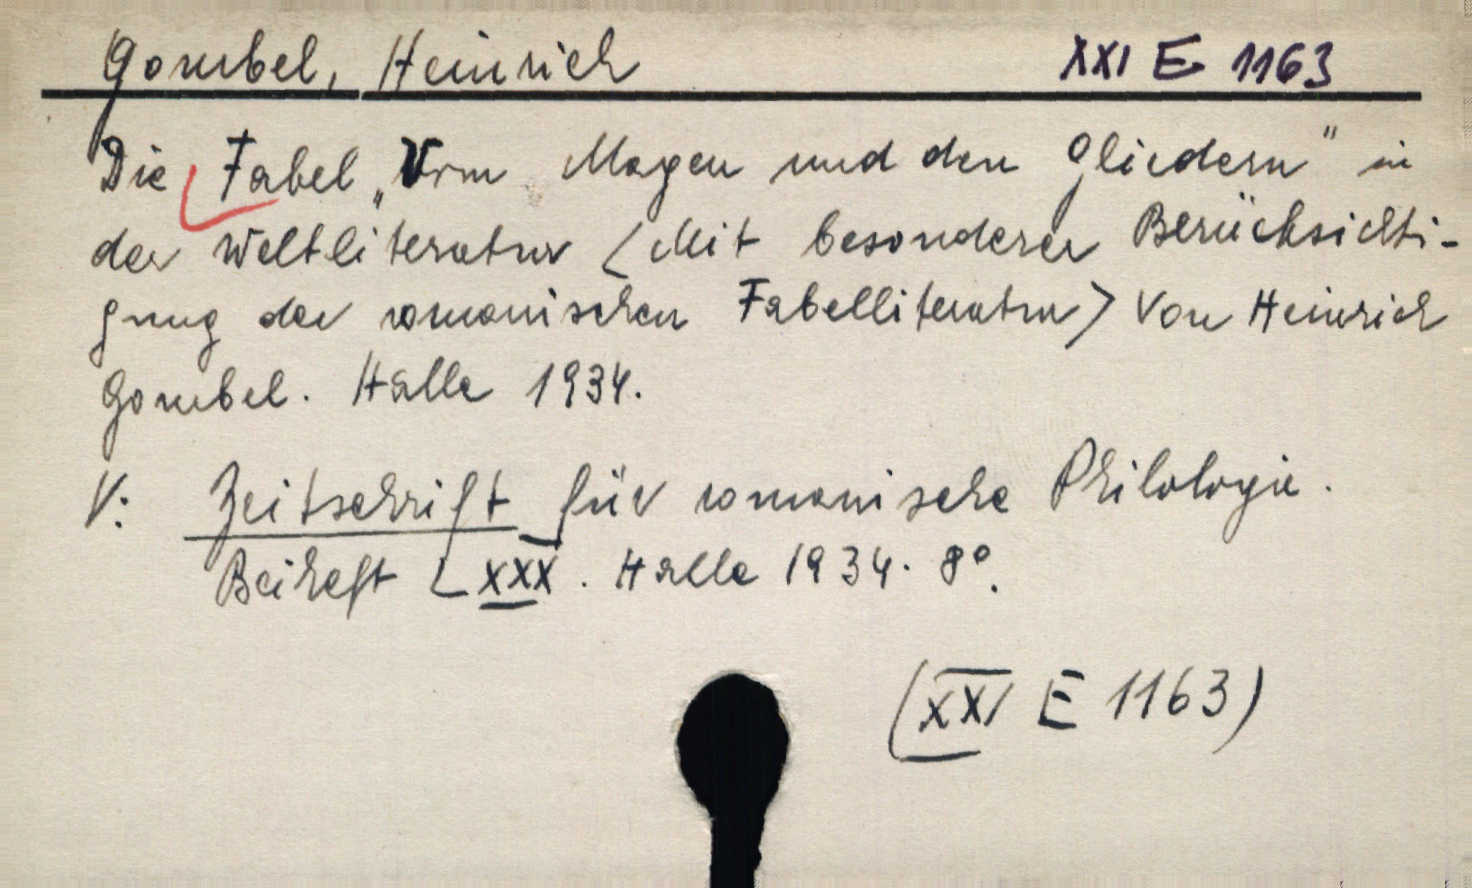 Gombel, Heinrich XXI E 1163
Die Fabel „Vom Magen und den Gliedern" in
der Weltliteratur <Mit besonderer Berücksichti-
gung der romanischen Fabelliteratur> Von Heinrich
Gombel. Halle 1934.
V: Zeitschrift für romanische Philologie.
Beiheft LXXX. Halle 1934. 8°.
(XXI E 1163)